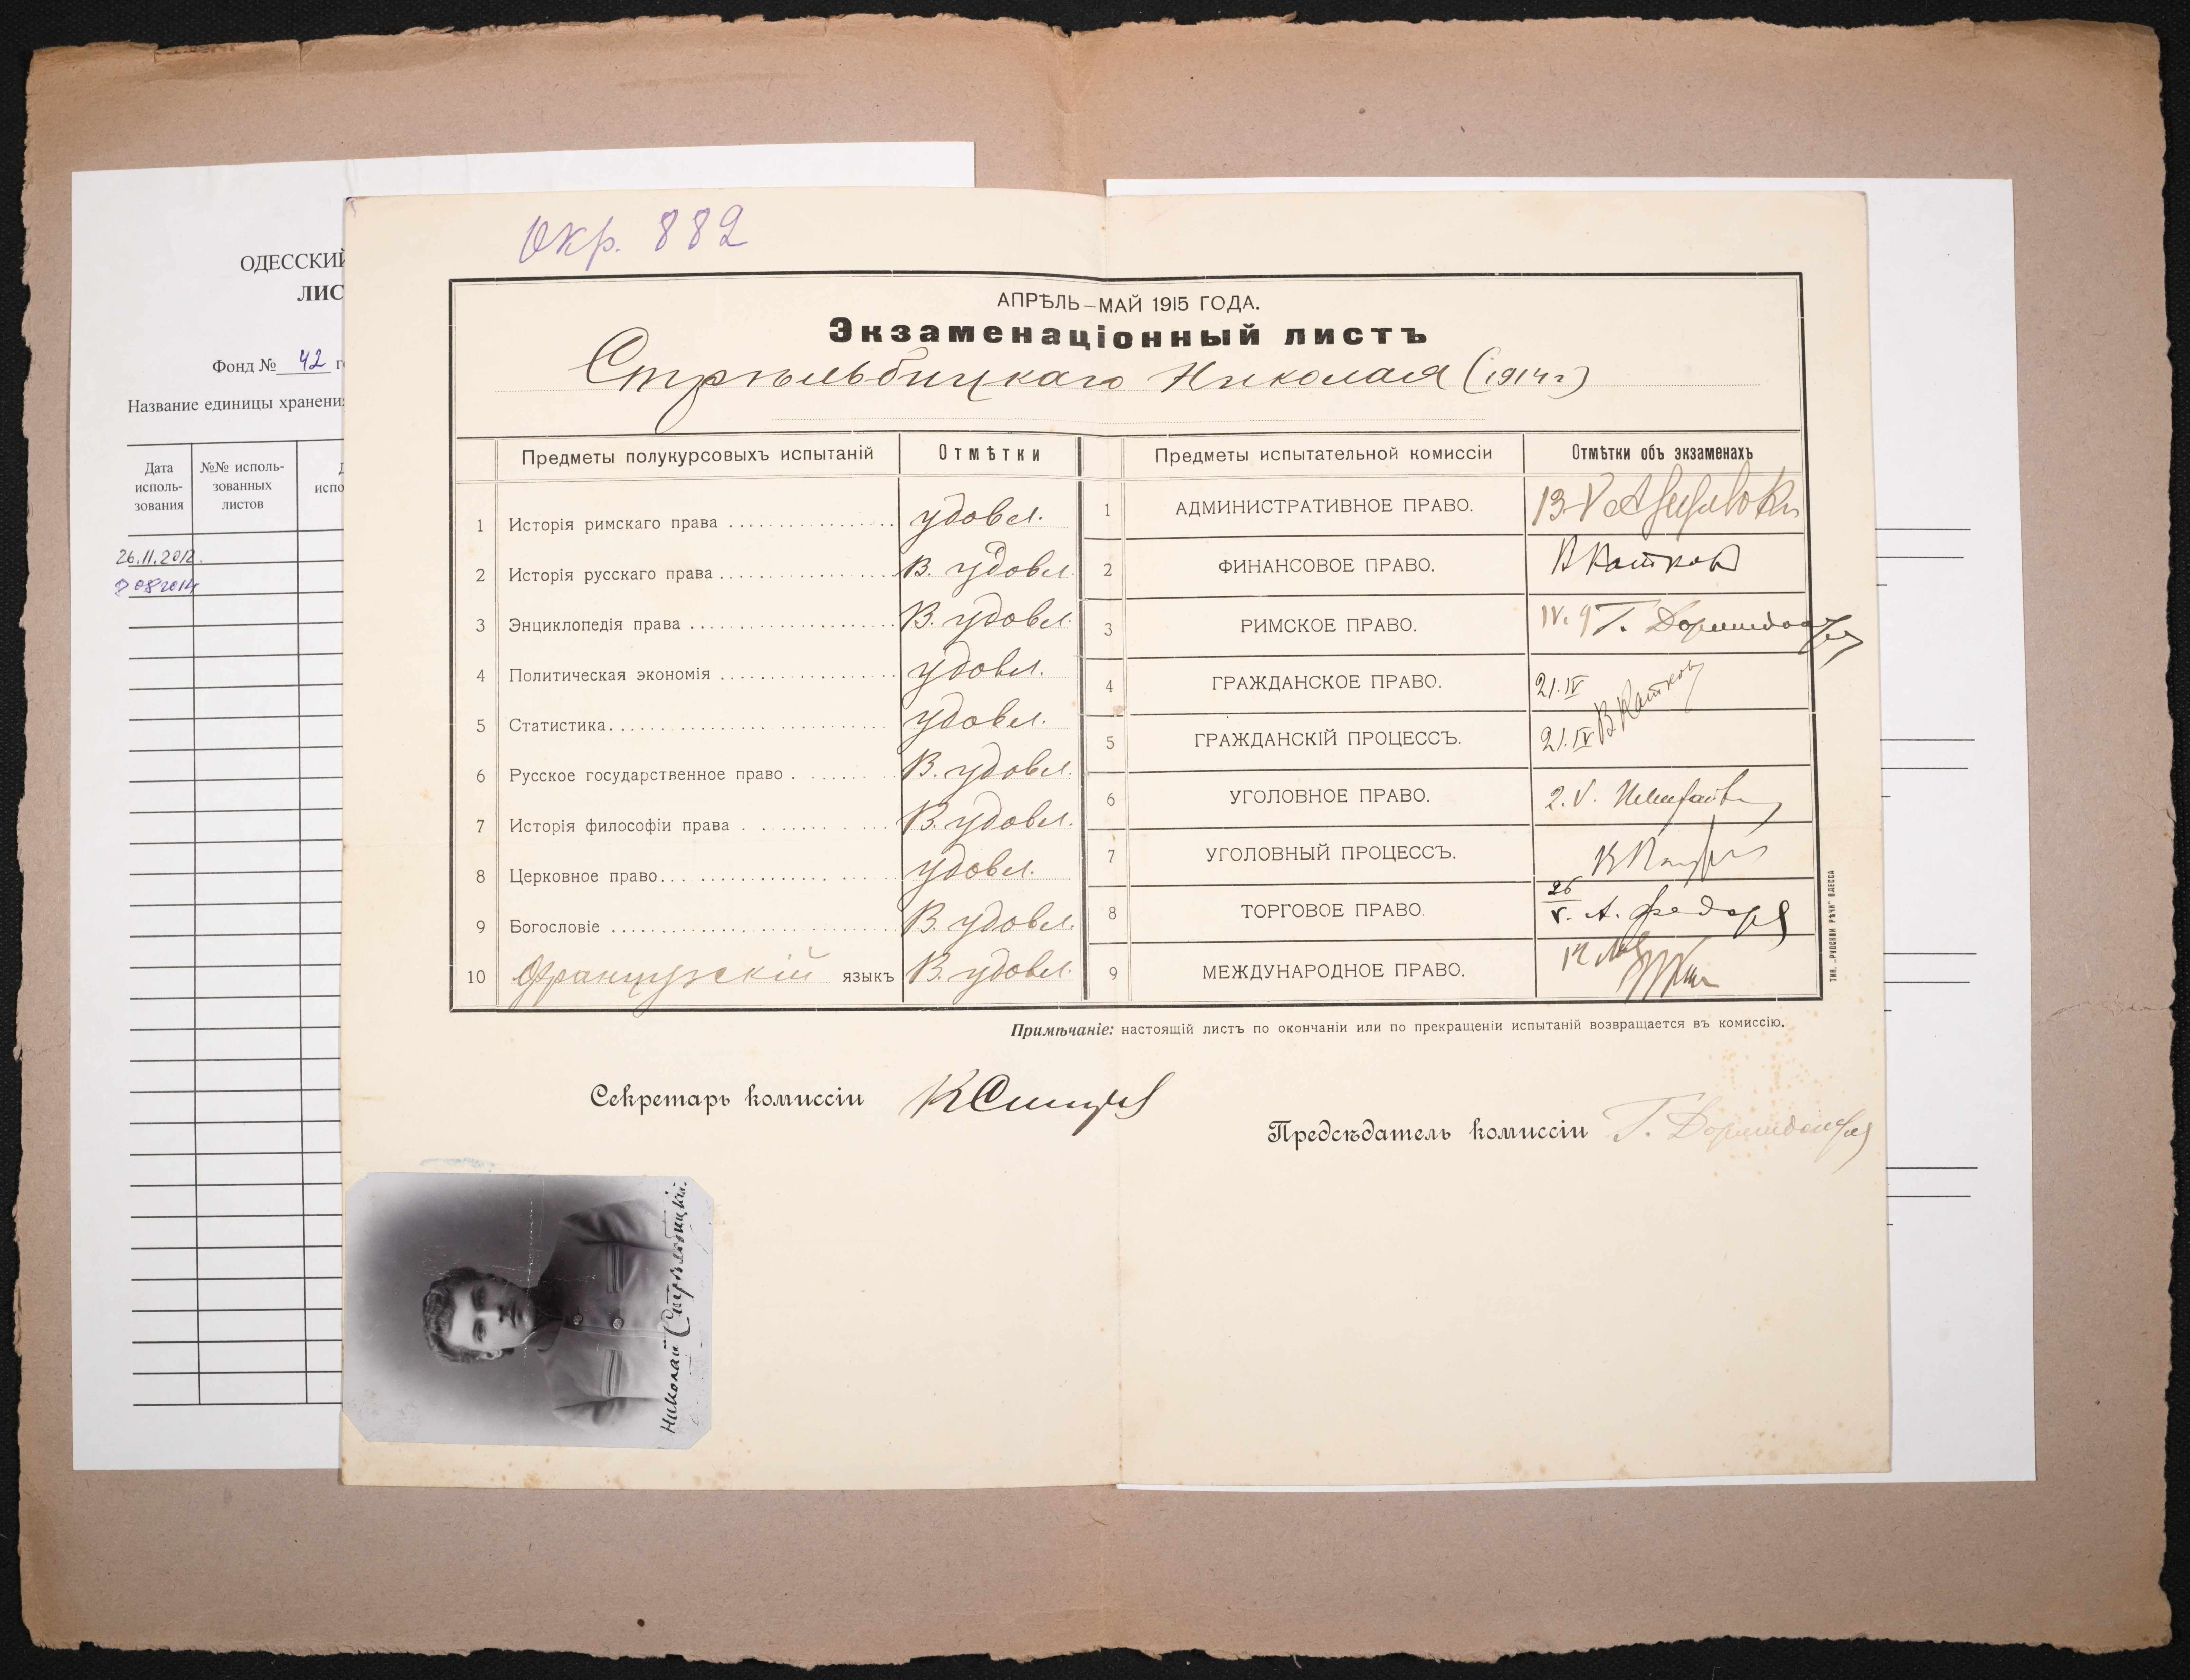 Окр. 882
ОДЕССКИЙ
ЛИС
Фонд № 42
Название единицы хранени
Дата исполь-зования
№№ исполь-зованных листов
26.11.2012.
АПРѢЛЬ—МАЙ 1915 ГОДА.
Экзаменаціонный листъ
Стрѣльбицкаго Николая (1914 г)
Предметы полукурсовыхъ испытаній Отмѣтки
1 Исторія римскаго права удовл.
2 Исторія русскаго права В. удовл.
3 Энциклопедія права В. удовл.
4 Политическая экономія удовл.
5 Статистика удовл.
6 Русское государственное право В. удовл.
7 Исторія философіи права В. удовл.
8 Церковное право удовл.
9 Богословіе В. удовл.
10 Французскій языкъ В. удовл.
Предметы испытательной комиссіи Отмѣтки объ экзаменахъ
1 АДМИНИСТРАТИВНОЕ ПРАВО. 13 V
2 ФИНАНСОВОЕ ПРАВО. В Катков
3 РИМСКОЕ ПРАВО. IV. 9 Г. Дормидонтов
4 ГРАЖДАНСКОЕ ПРАВО. 21. IV В Катков
5 ГРАЖДАНСКІЙ ПРОЦЕССЪ. 21. IV
6 УГОЛОВНОЕ ПРАВО. 2. V.
7 УГОЛОВНЫЙ ПРОЦЕССЪ.
8 ТОРГОВОЕ ПРАВО. 26 V. А. Федоров
9 МЕЖДУНАРОДНОЕ ПРАВО.
ТИП. „РУССКОЙ РѢЧИ" ОДЕССА
Примѣчаніе: настоящій листъ по окончаніи или по прекращеніи испытаній возвращается въ комиссію.
Секретарь комиссіи
Предсѣдатель комиссіи Г. Дормидонтов
Николай Стрѣльбицкій.